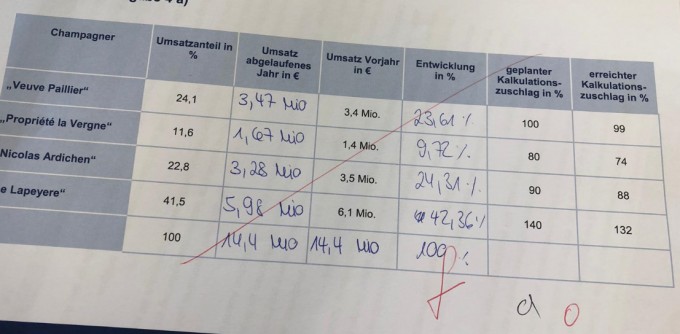 Champagner Umsatzanteil in % Umsatz abgelaufenes Jahr in € Umsatz Vorjahr in € Entwicklung in % geplanter Kalkulations-zuschlag in % erreichter Kalkulations-zuschlag in %
„Veuve Paillier“ 24,1 3,47 Mio 3,4 Mio. 23,61 % 100 99
„Propriété la Vergne“ 11,6 1,67 Mio 1,4 Mio. 9,72 % 80 74
Nicolas Ardichen“ 22,8 3,28 Mio 3,5 Mio. 24,31 % 90 88
e Lapeyere“ 41,5 5,98 Mio 6,1 Mio. 42,36 % 140 132
100 14,4 Mio 14,4 Mio 100 %
d 0